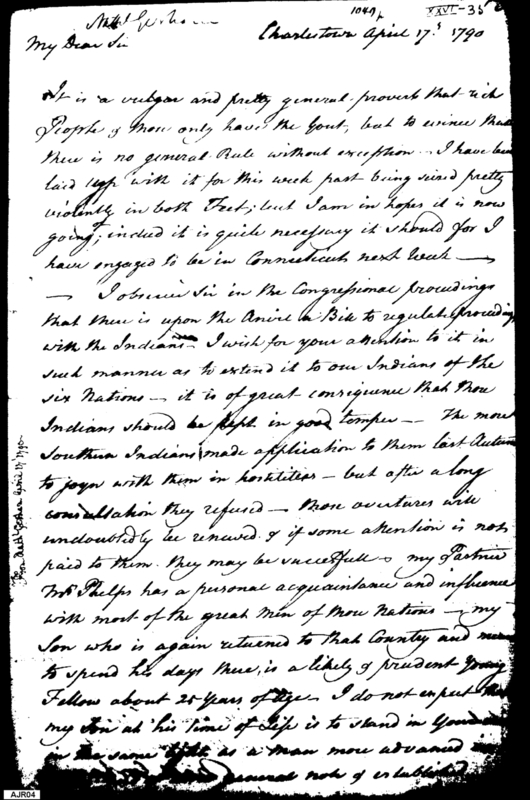 1049
XXVI-35
Charlestown April 17th 1790
My Dear Sir
It is a vulgar and pretty general proverb that rich
People & those only have the Gout, but to evince that
there is no general Rule without exception I have been
laid up with it for this week past being seized pretty
violently in both Feet; but I am in hopes it is now
going; indeed it is quite necessary it should for I
have engaged to be in Connecticut next Week —
— I observe Sir in the Congressional proceedings
that there is upon the a Bill to regulate proceedings
with the Indians — I wish for your attention to it in
such manner as to extend it to our Indians of the
six Nations — it is of great consequence that those
Indians should be kept in good temper — The more
Southern Indians made application to them last Autumn
to joyn with them in hostilities — but after a long
consultation they refused — those overtures will
undoubtedly be renewed & if some attention is not
paid to them they may be successfull — my Partner
Mr Phelps has a personal acquaintance and influence
with most of the great Men of those Nations — my
Son who is again returned to that Country and means
to spend his days there, is a likely & prudent Young
Fellow about 25 Years of Age — I do not expect that
my Son at his time of Life is to stand in Your
in the same light as a Man more advanced
general note & established
Hon Nathl Gorham April 17 1790
AJR04